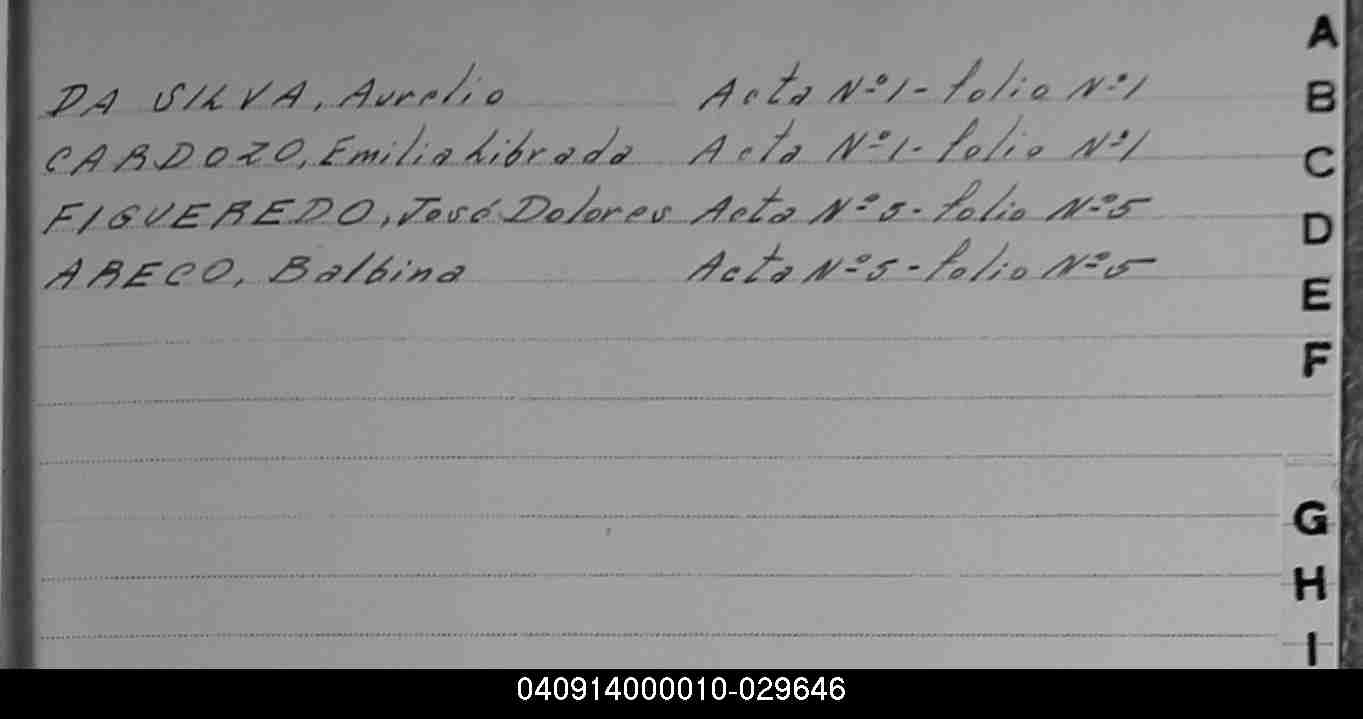 DA SILVA, Aurelio Acta Nº1- folio Nº1
CARDOZO, Emilia Librada Acta Nº1- folio Nº1
FIGUEREDO, José Dolores Acta Nº5- folio Nº5
ARECO, Balbina Acta Nº5- folio Nº5
A
B
C
D
E
F
G
H
I
040914000010-029646